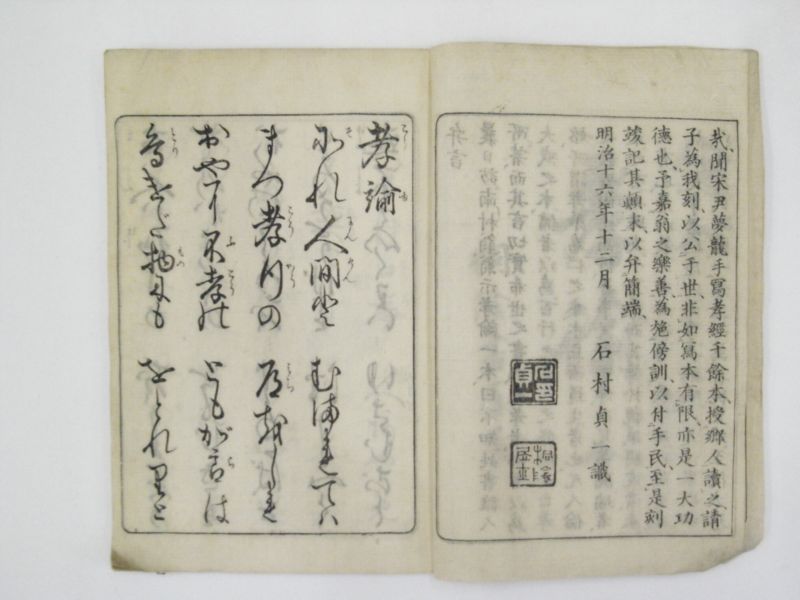 哉聞宋尹夢龍手寫孝經千餘本授鄉人讀之請
子為我刻以公于世非如寫本有限亦是一大功
德也予嘉翁之樂善為施傍訓以付手民至是刻
竣記其顛末以弁簡端
明治十六年十二月　石村貞一識
孝諭
それ人間とむまれてハ
まづ孝行の道をしれ
おや
不孝のともがらは
鳥けだ物にもをとれりと